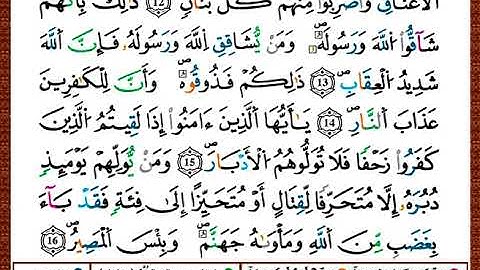 ٱلْأَعْنَاقِ وَٱضْرِبُوا۟ مِنْهُمْ كُلَّ بَنَانٍ 12 ذَٰلِكَ بِأَنَّهُمْ
شَآقُّوا۟ ٱللَّهَ وَرَسُولَهُۥ وَمَن يُشَاقِقِ ٱللَّهَ وَرَسُولَهُۥ فَإِنَّ ٱللَّهَ
شَدِيدُ ٱلْعِقَابِ 13 ذَٰلِكُمْ فَذُوقُوهُ وَأَنَّ لِلْكَٰفِرِينَ
عَذَابَ ٱلنَّارِ 14 يَٰٓأَيُّهَا ٱلَّذِينَ ءَامَنُوٓا۟ إِذَا لَقِيتُمُ ٱلَّذِينَ
كَفَرُوا۟ زَحْفًا فَلَا تُوَلُّوهُمُ ٱلْأَدْبَارَ 15 وَمَن يُوَلِّهِمْ يَوْمَئِذٍ
دُبُرَهُۥٓ إِلَّا مُتَحَرِّفًا لِّقِتَالٍ أَوْ مُتَحَيِّزًا إِلَىٰ فِئَةٍ فَقَدْ بَآءَ
بِغَضَبٍ مِّنَ ٱللَّهِ وَمَأْوَىٰهُ جَهَنَّمُ وَبِئْسَ ٱلْمَصِيرُ 16